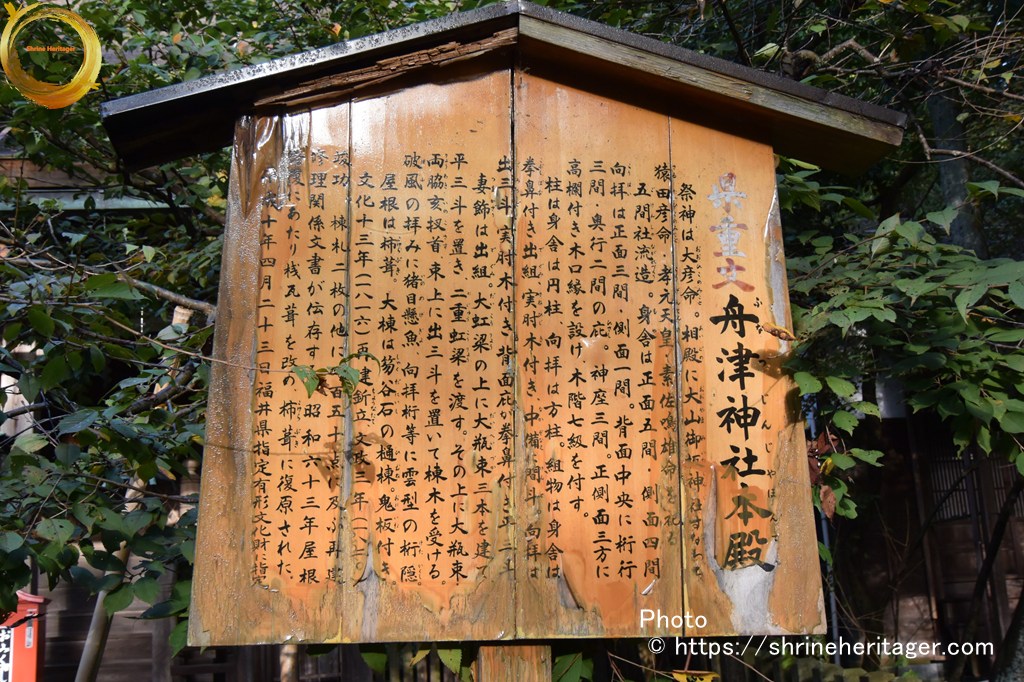 Shrine Heritager
県重文
舟津神社本殿
ふなつじんじゃほんでん
祭神は大彦命。相殿に大山御板神社
猿田彦命・孝元天皇・素佐鳴雄命を祀る
五間社流造。身舎は正面五間 側面四間
向拝は正面三間 側面一間 背面中央に桁行
三間・奥行二間の庇。神座三間。正側面三方に
高欄付き木口縁を設け木階七級を付す。
柱は身舎は円柱 向拝は方柱。組物は身舎は
拳鼻付き出組、実肘木付き、中備 間斗 向拝は
出三斗 実肘木付き 背面庇が拳鼻付き平三斗
妻飾は出組。大虹梁の上に大瓶束三本を建て
平三斗を置き、二重虹梁を渡す。その上に大瓶束
両脇亥扠首、束上に出三斗を置いて棟木を受ける。
破風の拝みに猪目懸魚、向拝桁等に雲型の桁隠
屋根は柿葺 大棟は笏谷石の樋棟鬼板付き
文化十三年(一八一六)再建釿立 文政三年(一八二〇)
竣功 棟札二枚の他に
修理関係文書が伝存する 昭和六十三年屋根
葺替にあたり桟瓦葺を改め柿葺に復原された。
十年四月二十三日福井県指定有形文化財に指定
Photo
© https://shrineheritager.com